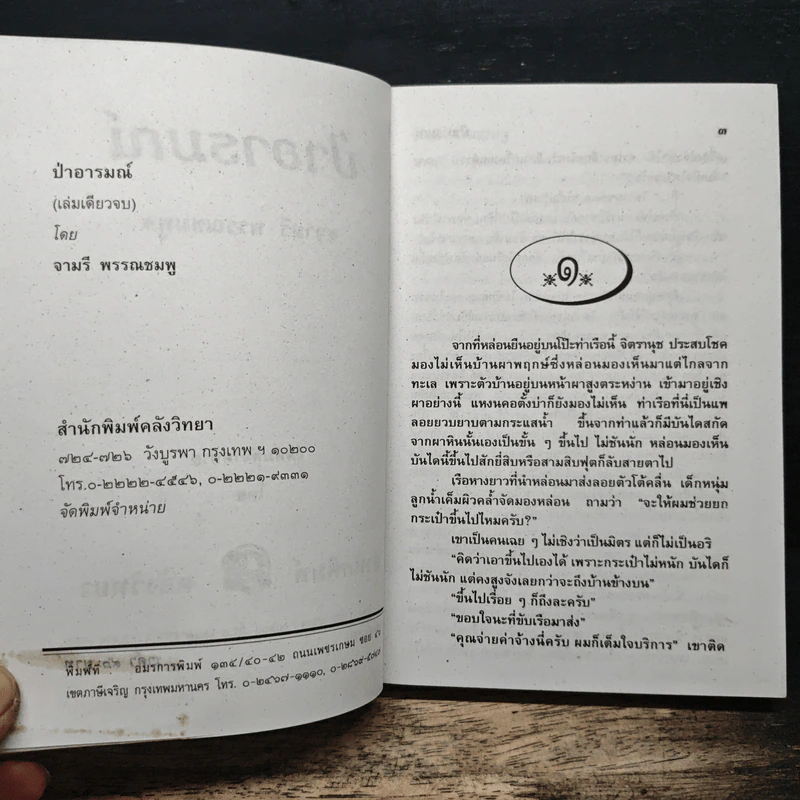 ป่าอารมณ์
(เล่มเดียวจบ)
โดย
จามรี พรรณชมพู
สำนักพิมพ์คลังวิทยา
๗๒๔-๗๒๖ วังบูรพา กรุงเทพ ฯ ๑๐๒๐๐
โทร.๐-๒๒๒๒-๔๕๔๖, ๐-๒๒๒๑-๙๓๓๑
จัดพิมพ์จำหน่าย
พิมพ์ที่ อมรการพิมพ์ ๑๓๔/๔๐-๔๒ ถนนเพชรเกษม ซอย
เขตภาษีเจริญ กรุงเทพมหานคร โทร. ๐-๒๔๖๗-๑๑๑๐,
๓
๑
จากที่หล่อนยืนอยู่บนโป๊ะท่าเรือนี้ จิตรานุช ประสบโชค
มองไม่เห็นบ้านผาพฤกษ์ซึ่งหล่อนมองเห็นมาแต่ไกลจาก
ทะเล เพราะตัวบ้านอยู่บนหน้าผาสูงตระหง่าน เข้ามาอยู่เชิง
ผาอย่างนี้ แหงนคอตั้งบ่าก็ยังมองไม่เห็น ท่าเรือที่นี่เป็นแพ
ลอยยวบยาบตามกระแสน้ำ ขึ้นจากท่าแล้วก็มีบันไดสกัด
จากผาหินนั้นเองเป็นขั้น ๆ ขึ้นไป ไม่ชันนัก หล่อนมองเห็น
บันไดนี้ขึ้นไปสักยี่สิบหรือสามสิบฟุตก็ลับสายตาไป
เรือหางยาวที่นำหล่อนมาส่งลอยตัวโต้คลื่น เด็กหนุ่ม
ลูกน้ำเค็มผิวคล้ำจัดมองหล่อน ถามว่า "จะให้ผมช่วยยก
กระเป๋าขึ้นไปไหมครับ?"
เขาเป็นคนเฉย ๆ ไม่เชิงว่าเป็นมิตร แต่ก็ไม่เป็นอริ
"คิดว่าเอาขึ้นไปเองได้ เพราะกระเป๋าไม่หนัก บันไดก็
ไม่ชันนัก แต่คงสูงจังเลยกว่าจะถึงบ้านข้างบน"
"ขึ้นไปเรื่อย ๆ ก็ถึงละครับ"
"ขอบใจนะที่ขับเรือมาส่ง"
"คุณจ่ายค่าจ้างนี่ครับ ผมก็เต็มใจบริการ" เขาติด